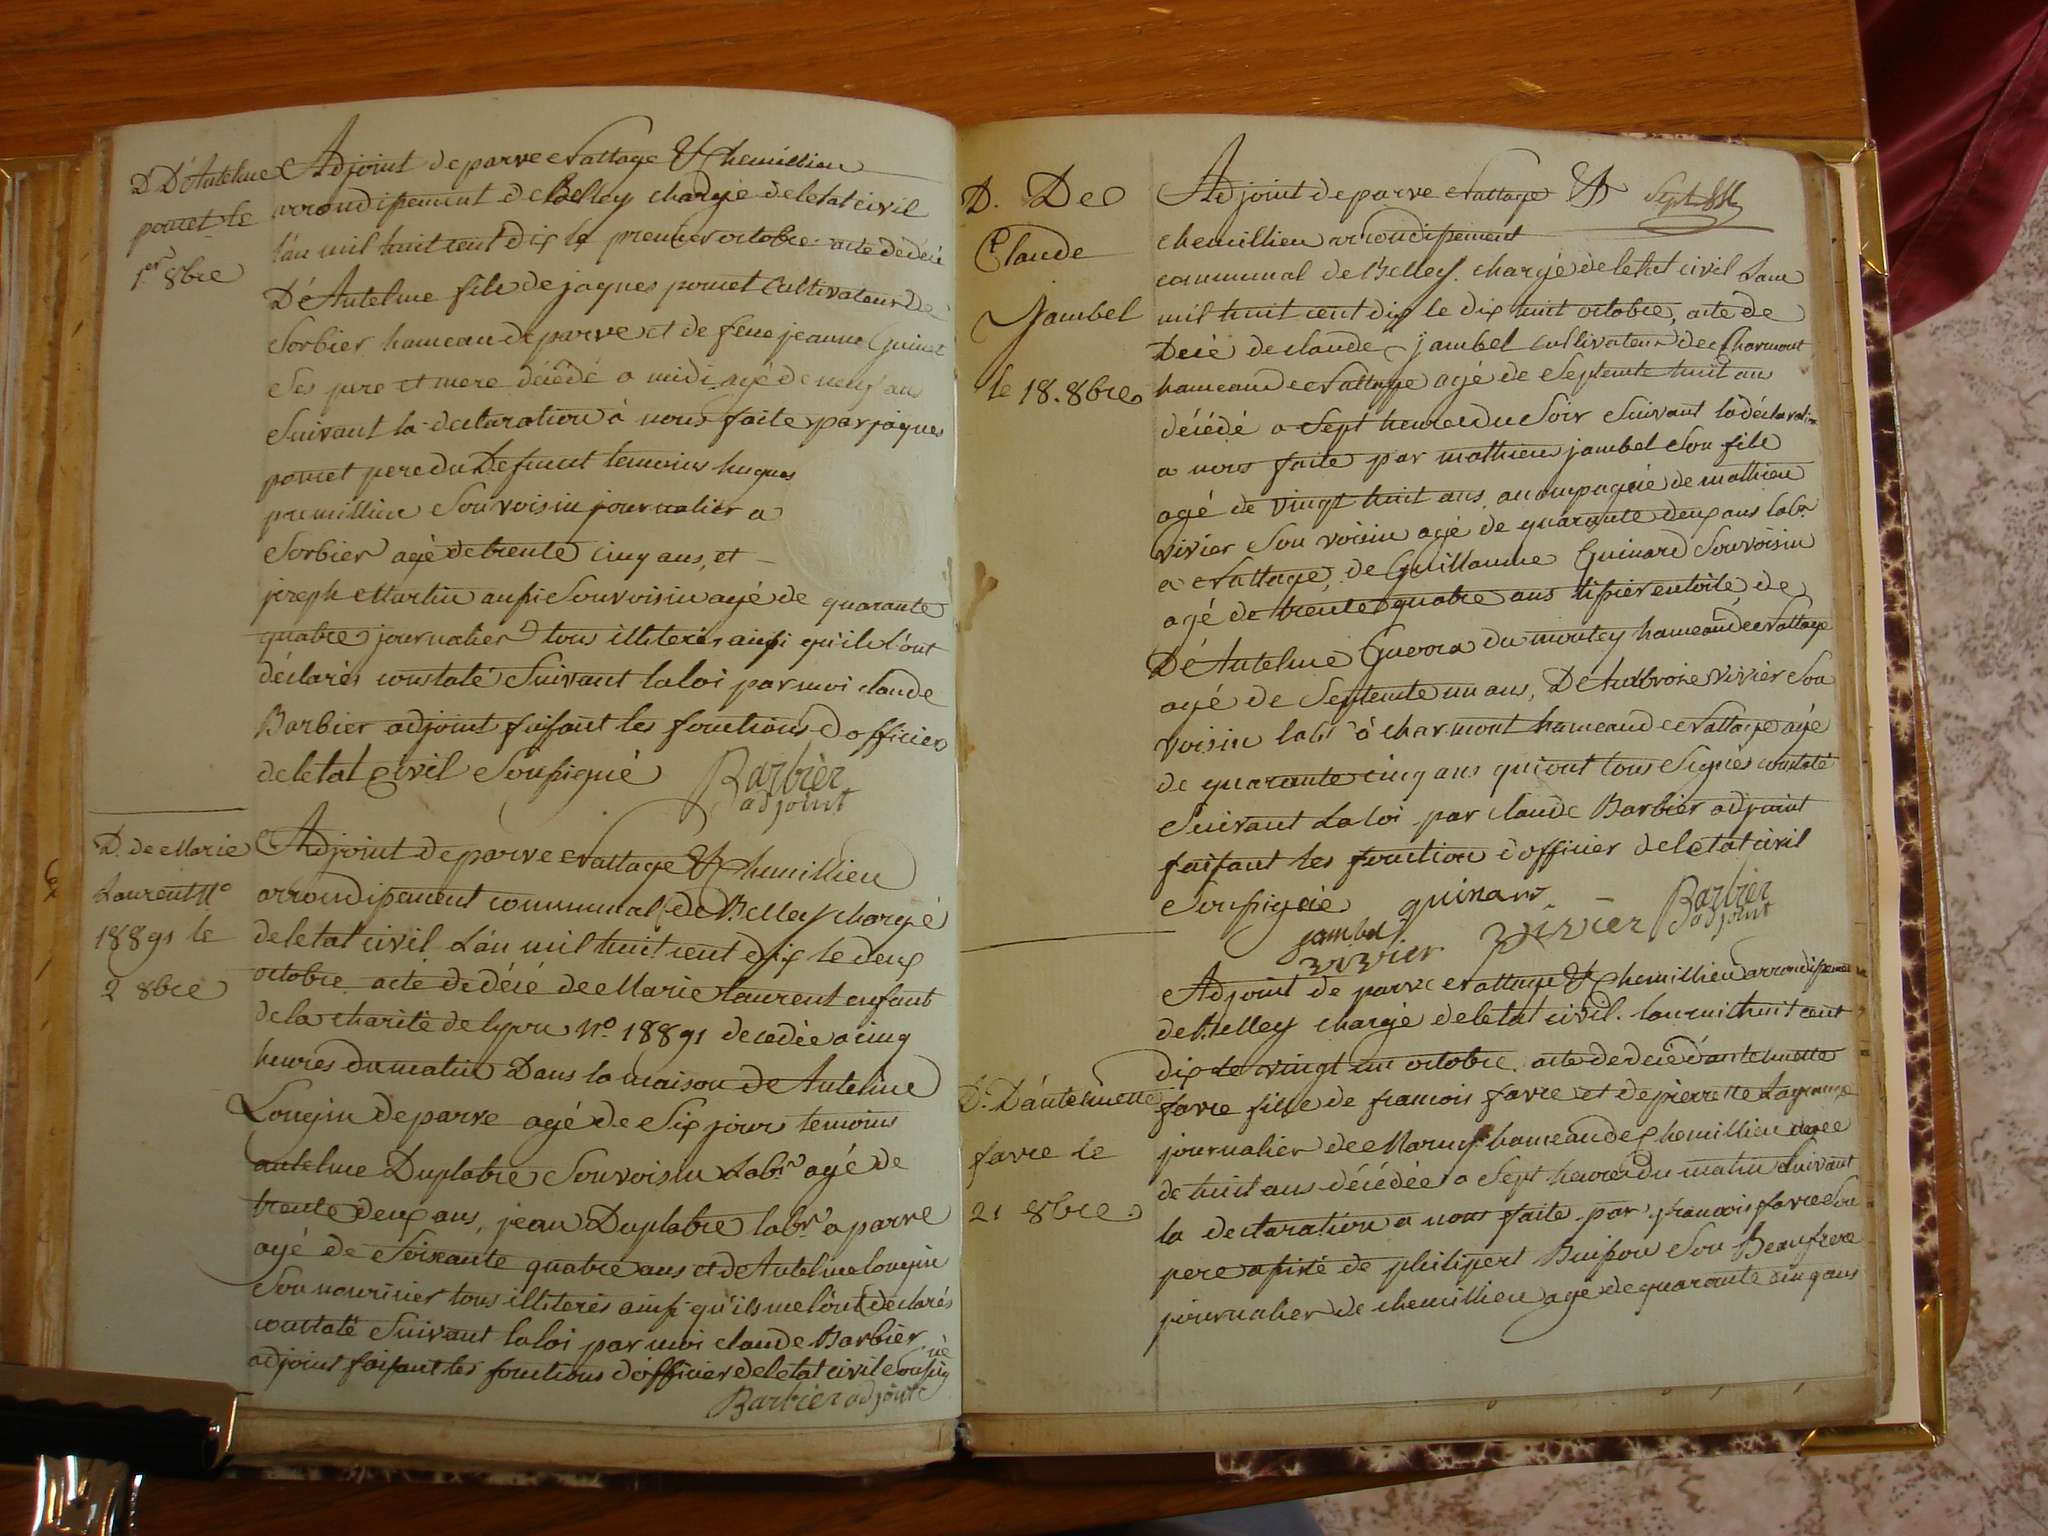 D D'Antelme
pomet le
1er 8bre
Adjoint de parve Nattage & Chemillieu
arrondissement de Belley chargé de letat civil
L'an mil huit cent dix le premier octobre acte de décé
D'Antelme fils de jaques pomet Cultivateur de
Sorbier hameau de parve et de feue jeanne Guinet
Ses pere et mere décédé a midi agé de neuf ans
Suivant la declaration à nous faite par jaques
pomet pere du Defunt temoins hugues
premillieu Son voisin journalier a
Sorbier agé de trente cinq ans, et
joseph Martin aussi Son voisin agé de quarante
quatre journalier tous illiterés ainsi qu'ils l'ont
déclarés constaté Suivant la loi par moi claude
Barbier adjoint faisant les fonctions d officier
de letat Civil Soussigné Barbier
adjoint
D. de Marie
Laurent No
18891 le
2 8bre
Adjoint de parve Nattage & Chemillieu
arrondissement communal de Belley chargé
de letat civil L'an mil huit cent dix le deux
octobre acte de décé de Marie Laurent enfant
de la charité de lyon No. 18891 decedée a cinq
heures du matin Dans la maison de Antelme
Longin de parve agé de Six jours temoins
antelme Duplatre Son voisin Labr agé de
trente deux ans, jean Duplatre labr a parve
agé de Soixante quatre ans et de Antelme longin
Son nouricier tous illiterés ainsi qu'ils me l'ont declarés
constaté Suivant la loi par moi claude Barbier
adjoint faisant les fonctions d'officier de letat civil Soussigné
Barbier adjoint
D. De
Claude
Jambel
le 18. 8bre
Adjoint de parve Nattage &
chemillieu arrondissement
communal de Belley. chargé de letat civil Lan
mil huit cent dix le dix huit octobre, acte de
Décé de claude jambel cultivateur de Charmont
hameau de Nattage agé de Septente huit ans
décédé a Sept heures du Soir Suivant la déclaration
a nous faite par mathieu jambel Son fils
agé de vingt huit ans accompagnié de mathieu
vivier Son voisin agé de quarante deux ans labr
a Nattage, de Guillaume Guinard Son voisin
agé de trente quatre ans tissier en toile, de
D'Antelme du montey hameau de Nattage
agé de Septente un ans, D'Ambroise vivier Son
voisin labr à charmont hameau de Nattage agé
de quarante cinq ans qui ont tous Signés constaté
Suivant La loi par claude Barbier adjoint
faisant les fonction d officier de letat civil
Soussignié guinard Barbier
jambel vivier adjoint
vivier
D. D'antelmette
favre le
21 8bre
Adjoint de parve Nattage & Chemillieu arrondissement
de Belley chargé de letat civil. lan mil huit cent
dix le vingt un octobre acte de décé d'antelmette
favre fille de francois favre et de pierrette Lagrange
journalier de hameau de Chemillieu
de huit ans décédée a Sept heures du matin Suivant
la declaration a nous faite par francois favre Son
pere assisté de philipert Buisson Son Beaufrere
journalier de chemillieu agé de quarante cinq ans